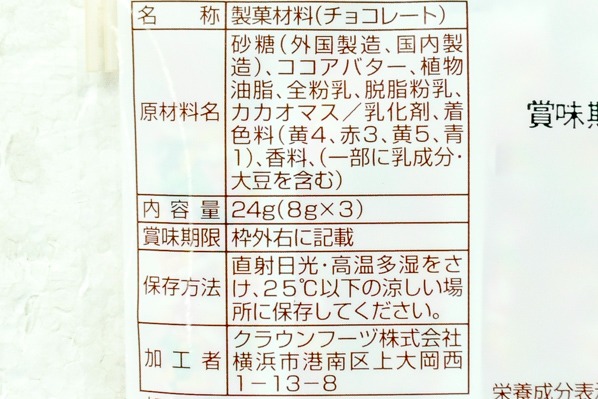 名称 製菓材料(チョコレート)
原材料名 砂糖(外国製造、国内製
造)、ココアバター、植物
油脂、全粉乳、脱脂粉乳、
カカオマス/乳化剤、着
色料(黄4、赤3、黄5、青
1)、香料、(一部に乳成分・
大豆を含む)
内容量 24g(8g×3)
賞味期限 枠外右に記載
保存方法 直射日光・高温多湿をさ
け、25℃以下の涼しい場
所に保存してください。
加工者 クラウンフーヅ株式会社
横浜市港南区上大岡西
1-13-8
賞味期
栄養成分表示